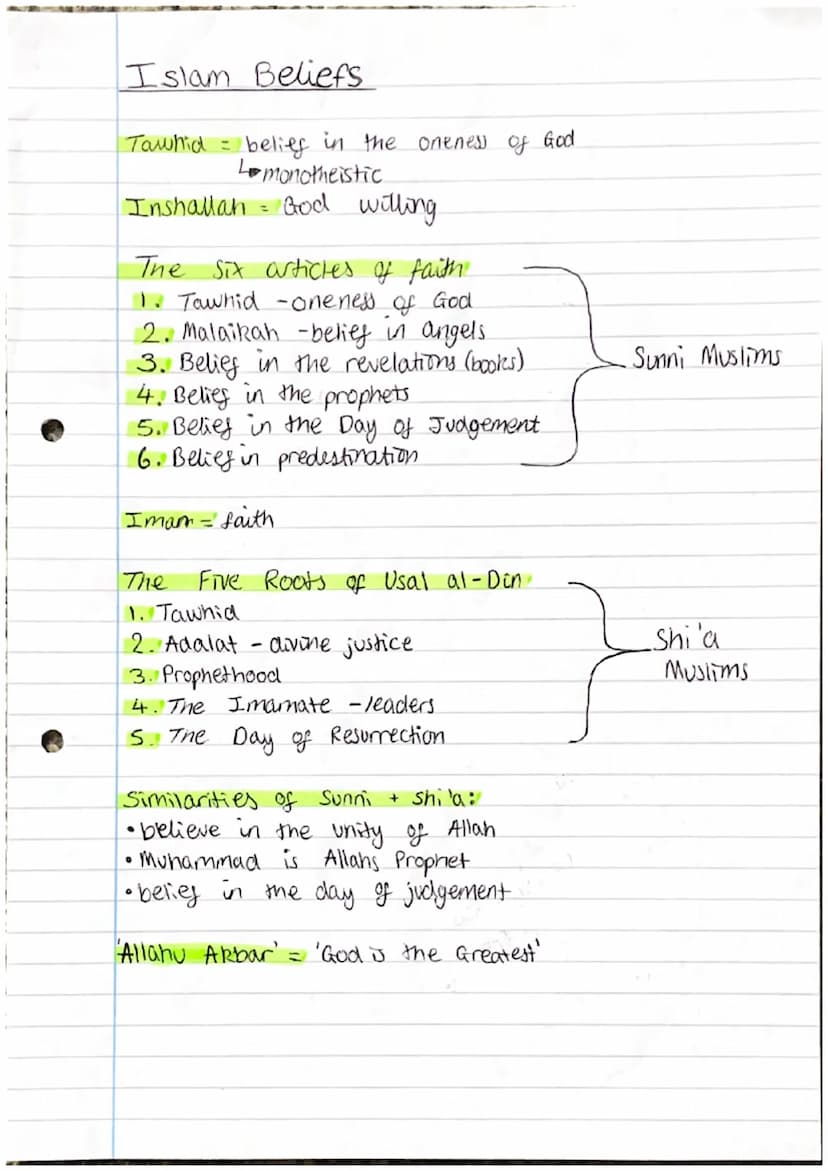 Islam Beliefs
Tawhid = belief in the oneness of God
↳monotheistic
Inshallah = God willing
The six articles of faith
1. Tawhid - oneness of God
2. Malaikah - belief in angels
3. Belief in the revelations (books)
4. Belief in the prophets
5. Belief in the Day of Judgement
6. Belief in predestination
Sunni Muslims
Imam = faith
The Five Roots of Usal al-Din
1. Tawhid
2. Adalat - divine justice
3. Prophethood
4. The Imamate - leaders
5. The Day of Resurrection
Shi'a
Muslims
Similarities of Sunni + Shi'a:
• believe in the unity of Allah
• Muhammad is Allahs Prophet
• belief in the day of judgement
'Allahu Akbar' = 'God is the Greatest'